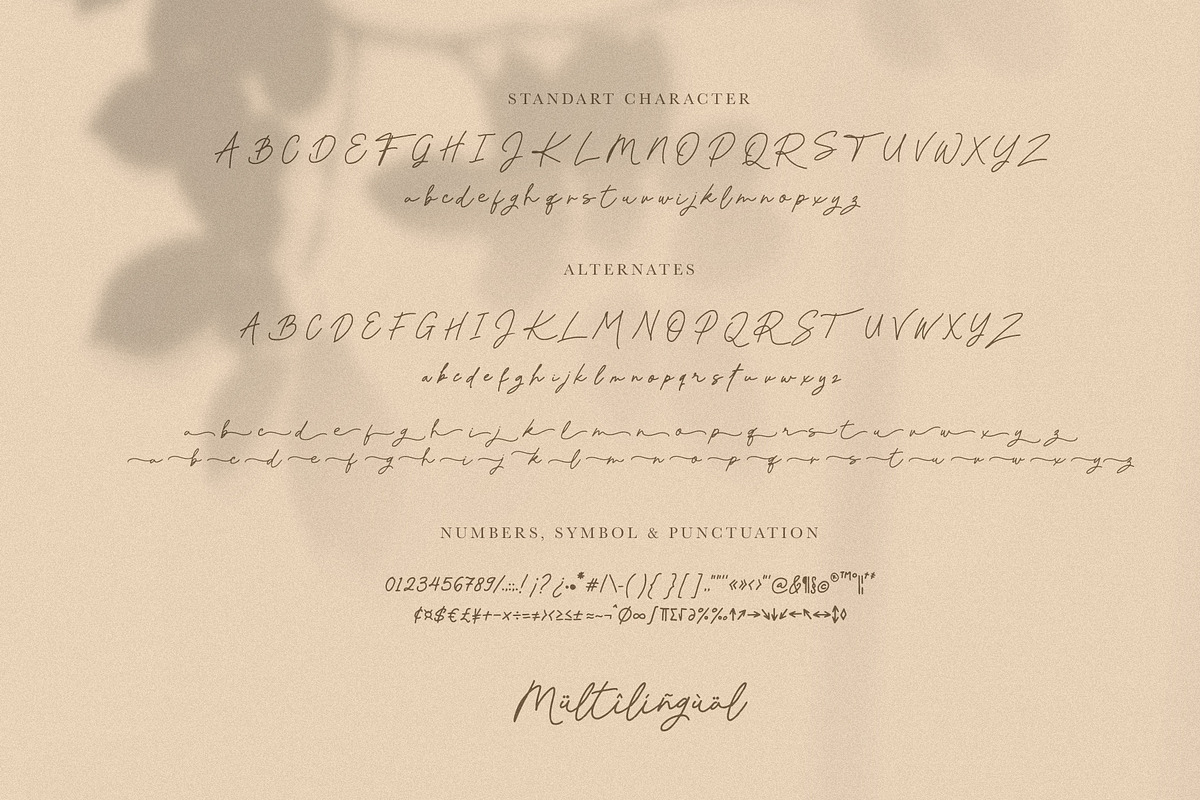 STANDART CHARACTER
A B C D E F G H I J K L M N O P Q R S T U V W X Y Z
a b c d e f g h q r s t u v w i j k l m n o p x y z
ALTERNATES
A B C D E F G H I J K L M N O P Q R S T U V W X Y Z
a b c d e f g h i j k l m n o p q r s t u v w x y z
a b c d e f g h i j k l m n o p q r s t u v w x y z
a b c d e f g h i j k l m n o p q r s t u v w x y z
NUMBERS, SYMBOL & PUNCTUATION
0123456789/.,:;..!¡?¿·•*#/\-(){}[].,""''«»‹›"'@&¶§©®™°¦†‡
¢¤$€£¥+−×÷=≠><≥≤±≈~¬^Ø∞∫∏∑√∂%‰↑↗→↘↓↙←↖↔↕◊
Mültîlíñgùäl